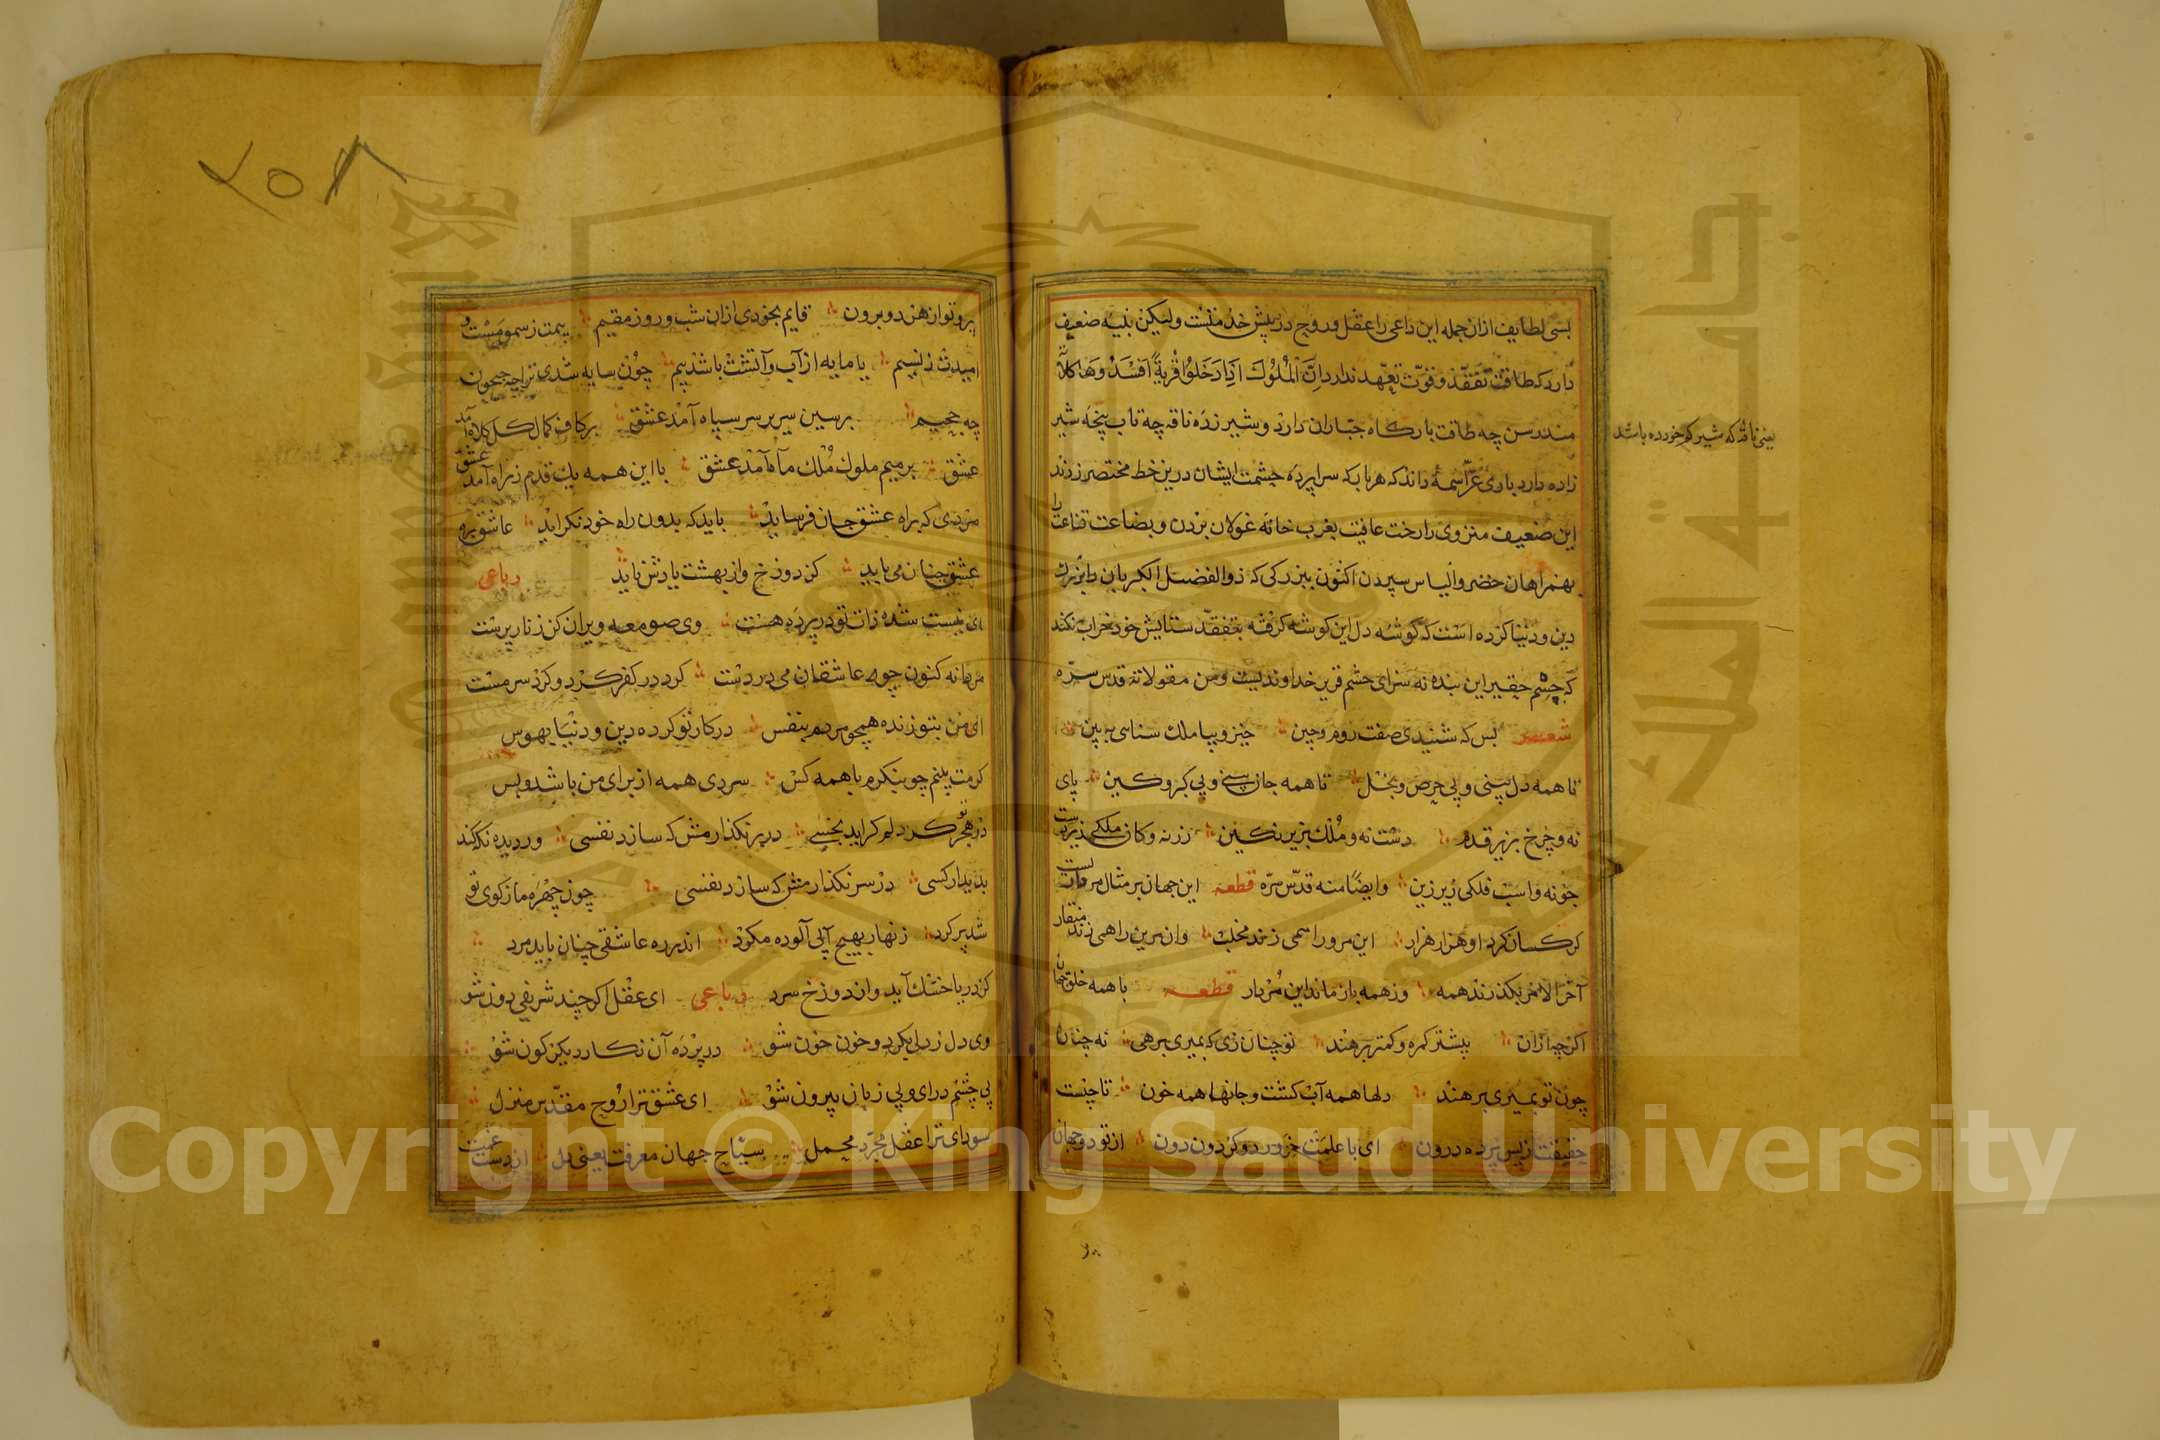 بسی لطایف ازان جمله این داعی را عقل و روح در پیش خدمتست ولیکن بنیه ضعیف
دارد که طاقت تفقّد و قوّت تعهّد ندارد اِنَّ الْمُلُوكَ اِذَا دَخَلُوا قَرْيَةً اَفْسَدُوهَا کلاّ
مندرس چه طاقت بارگاه جبّاران دارد و شیر زده ناقه چه تاب پنجه شیر
یعنی ناقه که شیر کم خورده باشد
زاده دارد باری عزّ اسمه داند که هر بار که سراپرده حشمت ایشان درین خط مختصر زدند
این ضعیف منزوی را رخت عافیت بغرب خانه غولان بردن و بضاعت قناعت را
بهمراهان خضر و الیاس سپردن اکنون بزرگی که ذو الفضل الکبر بآن بزرگ
دین و دنیا کرده است که گوشه دل این گوشه گرفته بتفقد ستایش خود خراب نکند
که چشم حقیر این بنده نه سزای چشم قریر خداوندیست ومن مقولاته قدس سرّه
شعر بس که شنیدی صفت روم و چین خیز و بیا ملک سنائی ببین
تا همه دل بینی و بی حرص و بخل تا همه جان بینی و بی کبر و کین پای
نه و چرخ بزیر قدم دست نه و ملک بزیر نگین زرنه و کان ملکی زیر دست
جونه و اسب فلکی زیر زین وایضًا منه قدّس سرّه قطعه این جهان بر مثال مردارست
کرکسان گرد او هزار هزار این مرورا همی زند مخلب وان مرین را همی زند منقار
آخر الامر بگذرند همه وز همه باز ماند این مردار قطعه با همه خلق جهان
اگرچه ازان بیشتر گمره و کمتر برهند تو چنان زی که بمیری برهی نه چنان
چون تو بمیری برهند دلها همه آب گشت و جانها همه خون تا چیست
حقیقت از پس پرده درون ای با علمت خرد رد و گردون دون از تو دو جهان
پر و تو از هر دو برون قایم بخودی ازان شب و روز مقیم بیمت ز سمومست و
امیدت ز نسیم با مایه از آب و آتشت باشد بیم چون سایه شدی ترا چه جیحون
چه جحیم بر سین سریر سر سپاه آمد عشق بر کاف کمال کل کلاه آمد
عشق بر میم ملوک ملک ماه آمد عشق با این همه یك قدم ز راه آمد عشق
مردی که براه عشق جان فرساید باید که بدون راه خود نگراید عاشق بره
عشق چنان می باید کز دوزخ و از بهشت یادش ناید رباعی
ای نیست شده ذات تو در پرده هست وی صومعه ویران کن زنار پرست
مردانه کنون چو عاشقان می در دست گرد در کفر گرد و گرد سر مست
ای من بتو زنده همچو مردم بنفس در کار تو کرده دین و دنیا بهوس
گرمت بینم چو بنگرم با همه کس سردی همه از برای من باشد و بس
در هجر تو گر دلم گراید بخسی در بر نگذارمش که سازد نفسی ور دیده نگه کند
بدیدار کسی در سر نگذارمش که سازد نفسی چون چهره ما ز کوی تو
شد پر گرد زنهار بهیچ آبی آلوده مگرد اندر ده عاشقی چنان باید مرد
کز دریا خشك آید و از دوزخ سرد رباعی ای عقل اگر چند شریفی دون شو
وی دل ز دلی بگرد و خون خون شو در پرده آن نگار دیگر گون شو
بی چشم درای و بی زبان بیرون شو ای عشق ترا روح مقدّس منزل
سودای ترا عقل مجرّد محمل سیّاح جهان معرفت یعنی دل از دست غمت
جامعة الملك سعود
1957
Copyright © King Saud University